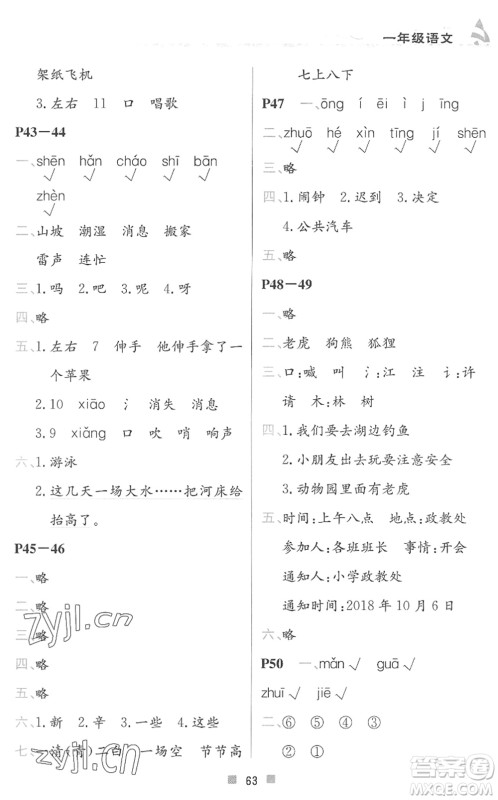 一年级语文
架纸飞机
3.左右 11 口 唱歌
P43－44
一、shēn hǎn cháo shī bān
√ √ √ √ √
zhèn
√
二、山坡 潮湿 消息 搬家
雷声 连忙
三、1.吗 2.吧 3.呢 4.呀
四、略
五、1.左右 7 伸手 他伸手拿了一
个苹果
2.10 xiāo 氵 消失 消息
3.9 xiǎng 口 吹 哨 响声
六、1.游泳
2.这几天一场大水……把河床给
抬高了。
P45－46
一、略
二、略
三、略
四、略
五、略
六、1.新 2.辛 3.一些 4.这些
七、一清(青)二白 一场空 节节高
七上八下
P47 一、ōng í ēi ì īng
二、zhuō hé xìn tīng jí
√ √ √ √ √
三、略
四、1.闹钟 2.迟到 3.决定
4.公共汽车
五、略
P48－49
一、略
二、老虎 狗熊 狐狸
三、口:喊 叫 氵:江 注 讠:许
请 木:林 树
四、1.我们要去湖边钓鱼
2.小朋友出去玩要注意安全
3.动物园里面有老虎
五、时间:上午八点 地点:政教处
参加人:各班班长 事情:开会
通知人:小学政教处
通知时间:2018 年 10 月 6 日
六、略
P50 一、mǎn guā
√ √
zhuī jiē
√ √
二、⑥ ⑤ ④ ③
② ①
zyjl.cn
zyjl.cn
63